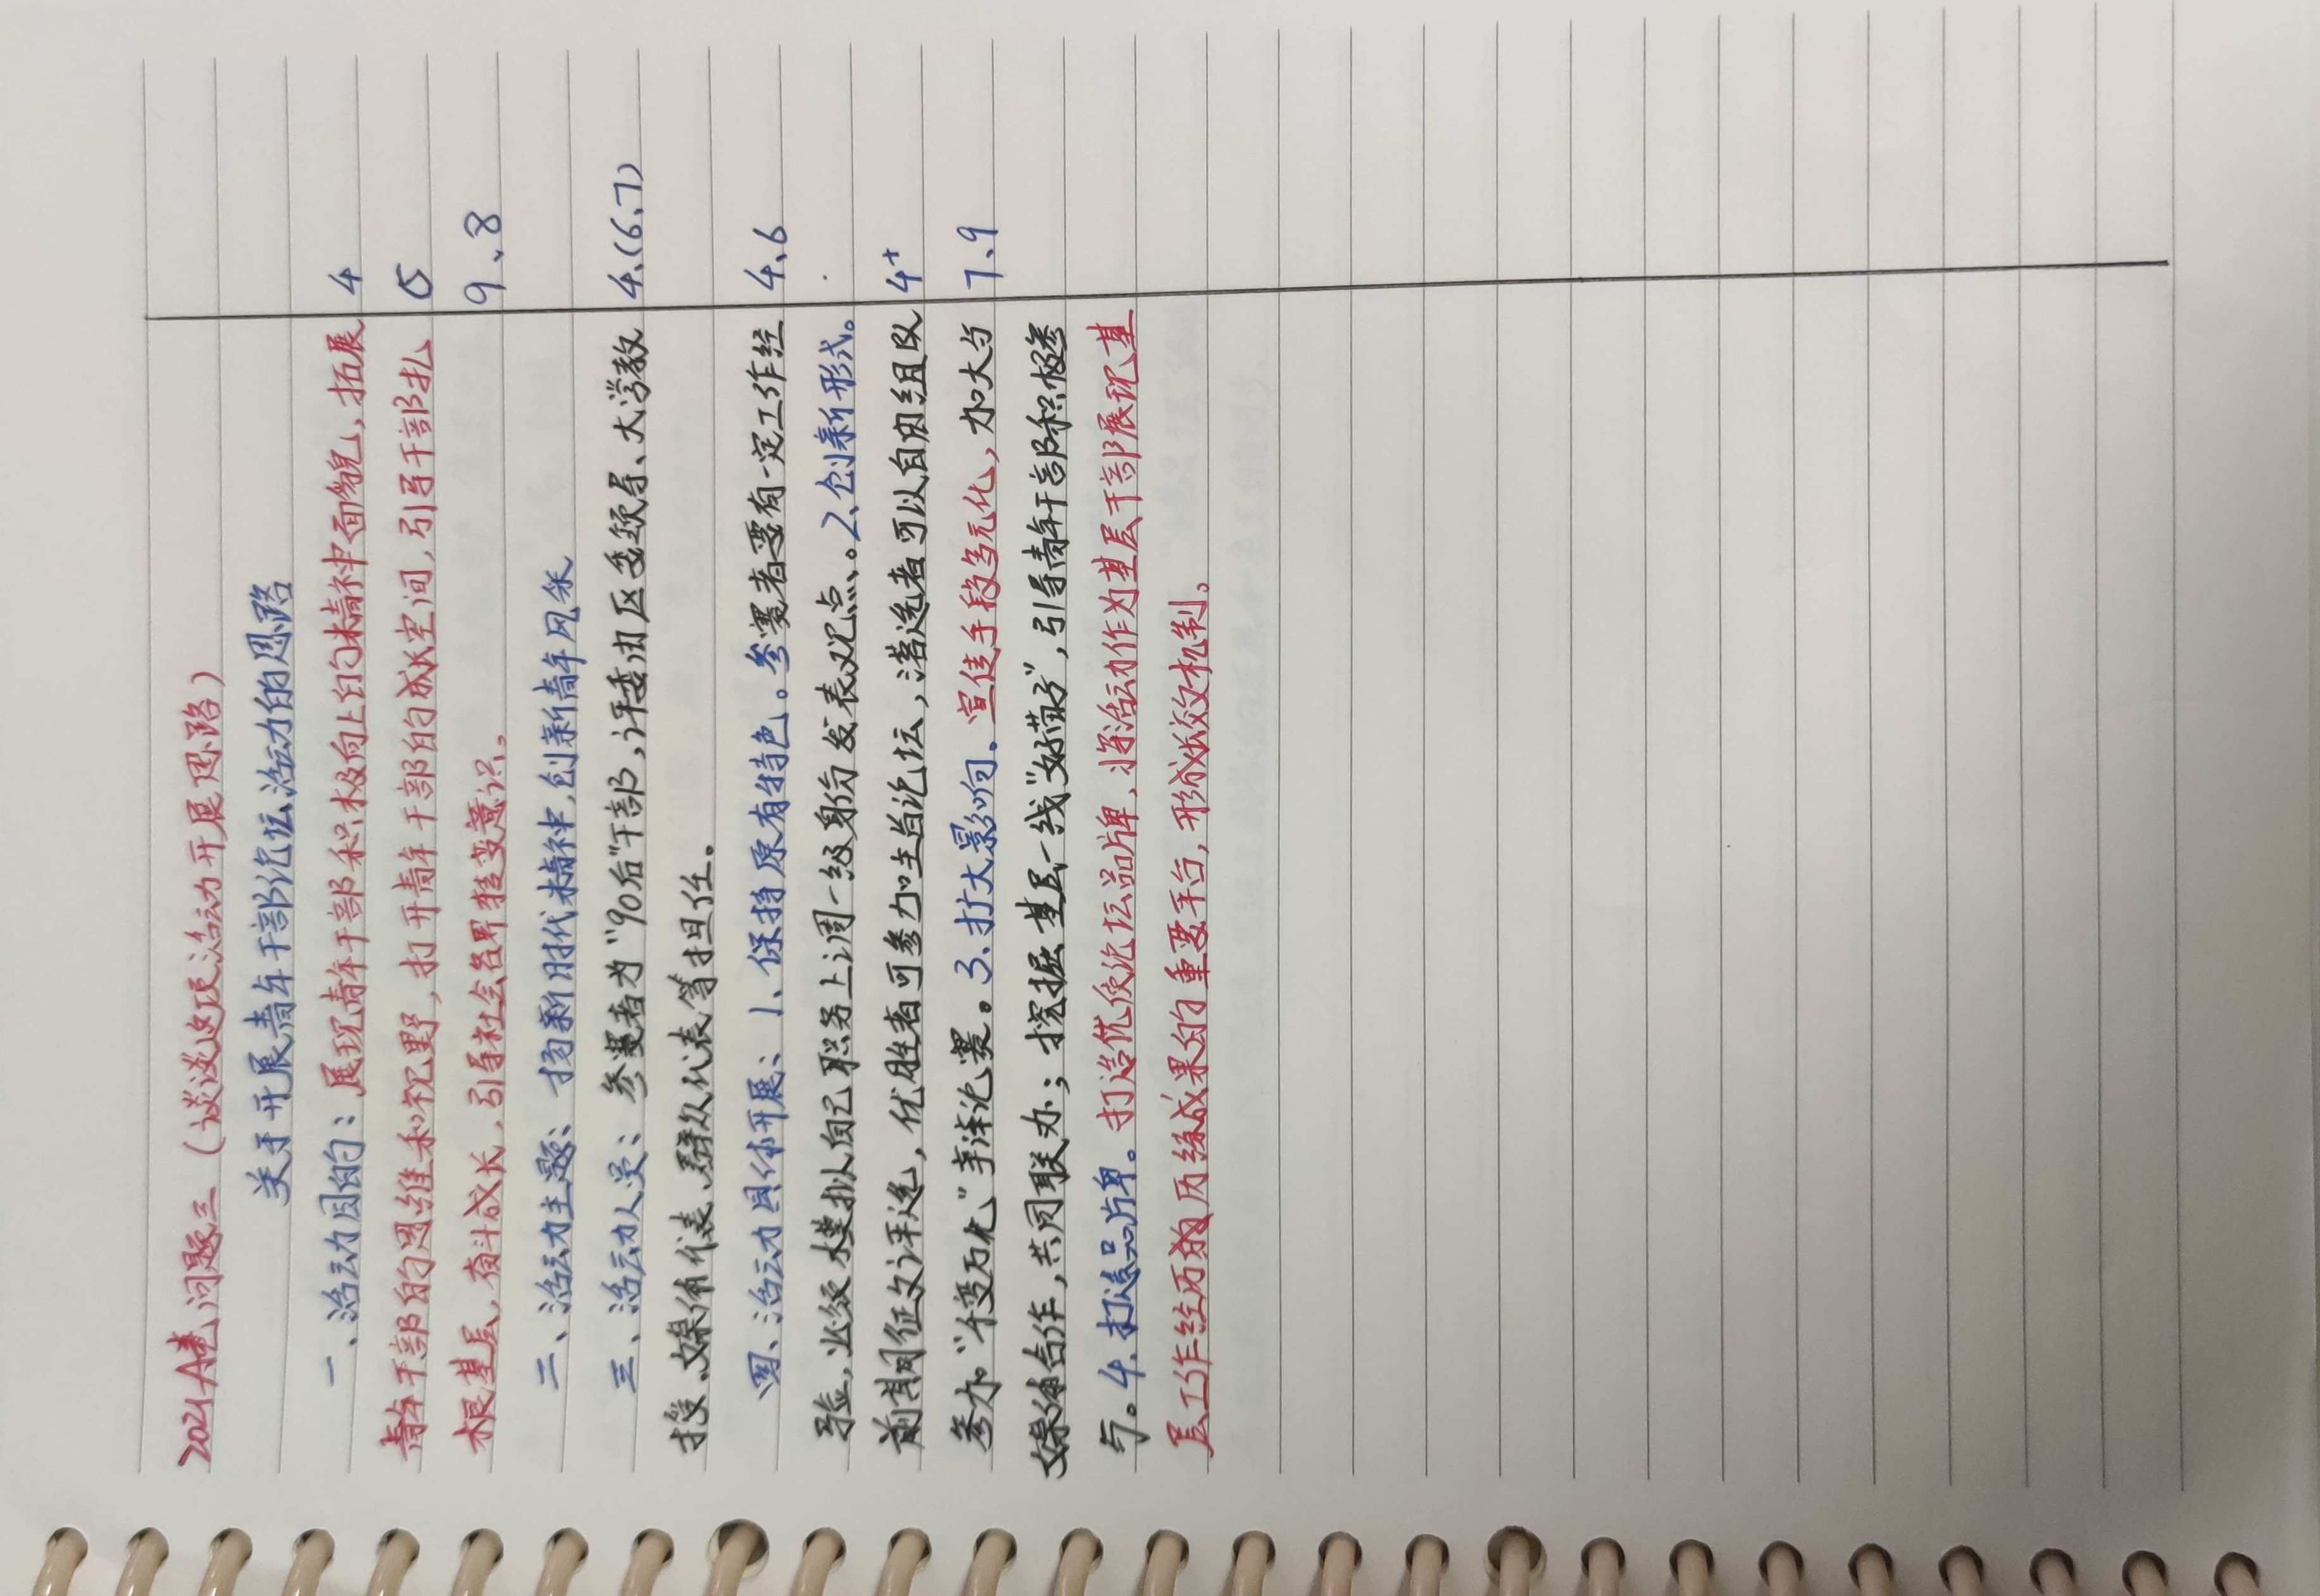 2021A卷 问题三（谈谈这项活动开展思路）
关于开展青年干部论坛活动的思路
一、活动目的：展现青年干部积极向上的精神面貌，拓展 4
青年干部的思维和视野，打开青年干部的成长空间，引导干部扎 5
根基层，奋斗成长，引导社会各界转变意识。 9、8
二、活动主题：扬新时代精神，创新青年风采
三、活动人员：参赛者为“90后”干部，评委由区委领导、大学教 4、(6、7)
授、媒体代表、群众代表等担任。
四、活动具体开展：1、保持原有特色。参赛者要有一定工作经 4、6
验，必须模拟自己职务上调一级身份发表观点。2、创新形式。
前期征文评选，优胜者可参加主旨论坛，落选者可以自由组队 4+
参加“千变万化”辩论赛。3、扩大影响。宣传手段多元化，加大与 7、9
媒体合作，共同联办；挖掘基层一线“好苗子”，引导青年干部积极参
与。4、打造品牌。打造优质论坛品牌，将活动作为基层干部展现基
层工作经历的历练成果的重要平台，形成长效机制。